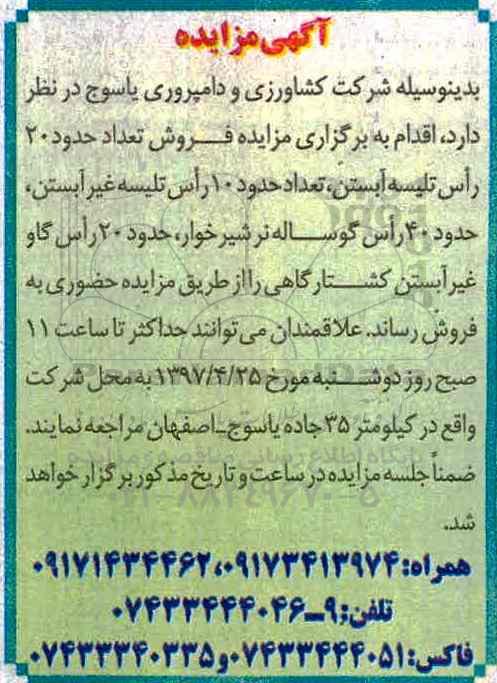 آگهی مزایده
بدینوسیله شرکت کشاورزی و دامپروری یاسوج در نظر
دارد، اقدام به برگزاری مزایده فروش تعداد حدود ۲۰
رأس تلیسه آبستن، تعداد حدود ۱۰ رأس تلیسه غیر آبستن،
حدود ۴۰ رأس گوساله نر شیر خوار، حدود ۲۰ رأس گاو
غیر آبستن کشتارگاهی را از طریق مزایده حضوری به
فروش رساند. علاقمندان می توانند حداکثر تا ساعت ۱۱
صبح روز دوشنبه مورخ ۱۳۹۷/۴/۲۵ به محل شرکت
واقع در کیلومتر ۳۵ جاده یاسوج-اصفهان مراجعه نمایند.
ضمناً جلسه مزایده در ساعت و تاریخ مذکور برگزار خواهد
شد.
همراه: ۰۹۱۷۳۴۱۳۹۷۴، ۰۹۱۷۱۴۳۴۴۶۲
تلفن: ۹-۰۷۴۳۳۴۴۴۰۴۶
فاکس: ۰۷۴۳۳۴۴۴۰۵۱ و ۰۷۴۳۳۳۴۰۳۳۵